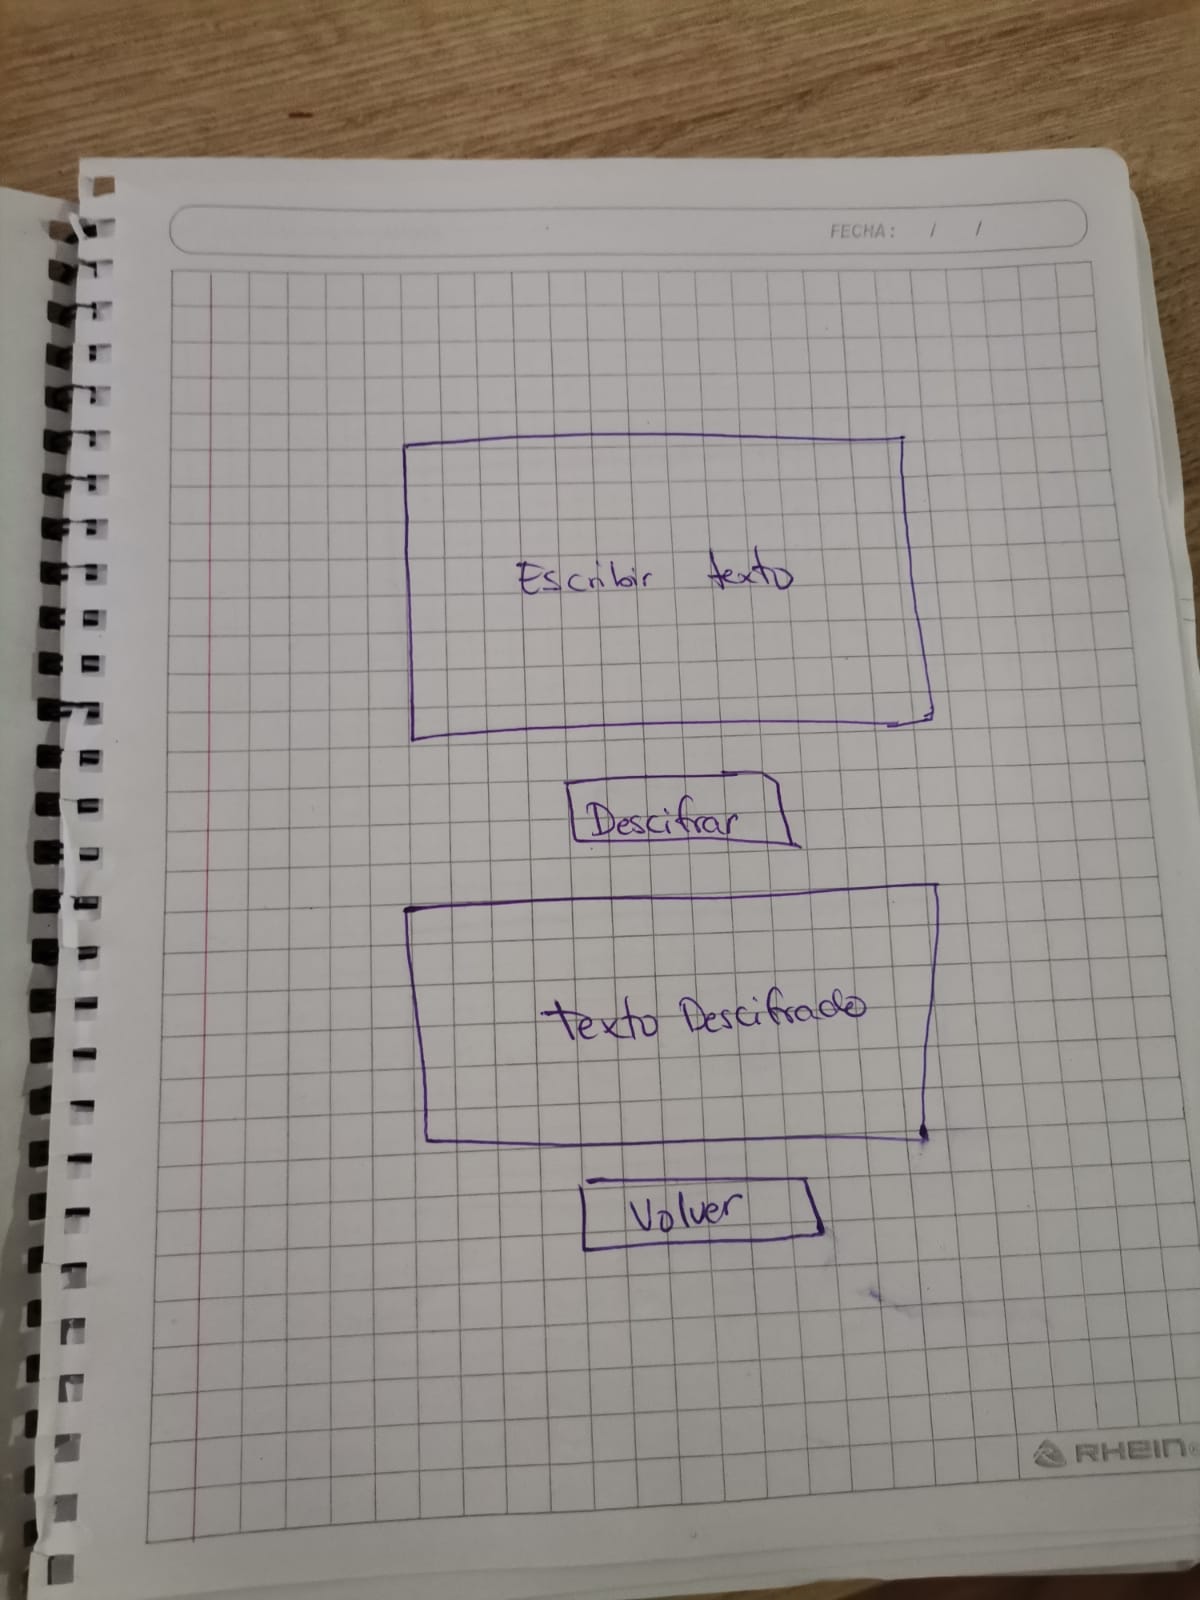 FECHA: / /
Escribir texto
Descifrar
texto Descifrado
Volver
RHEIN®